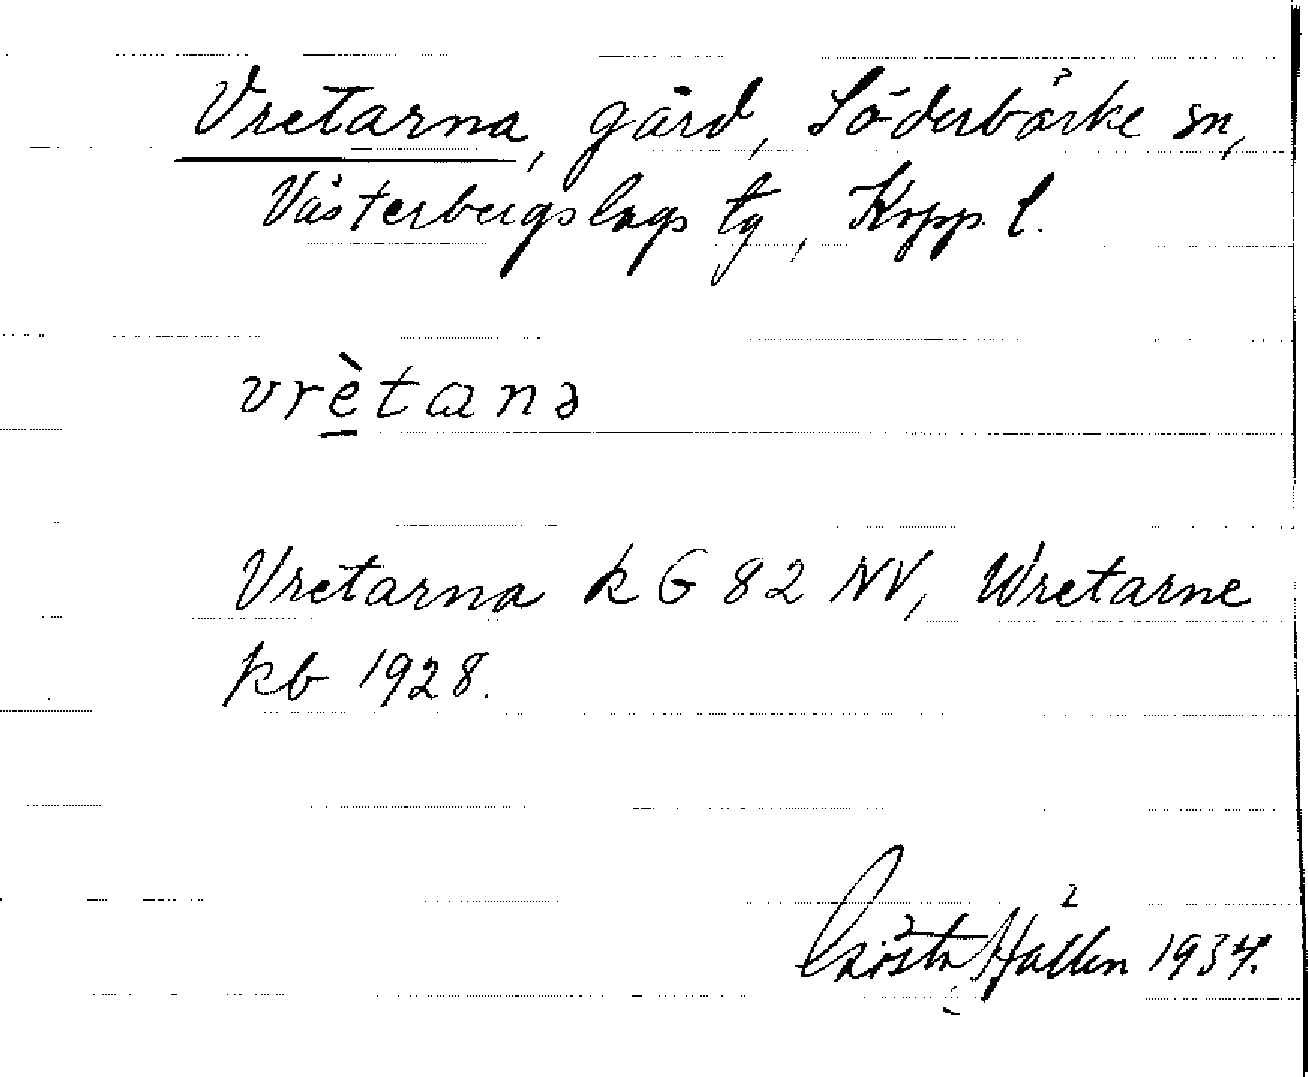 Vretarna, gård, Söderbärke sn,
Västerbergslags tg, Kopp. l.
vrètanə
Vretarna k G 82 NV, Wretarne
kb 1928.
Gösta Hallén 1934.